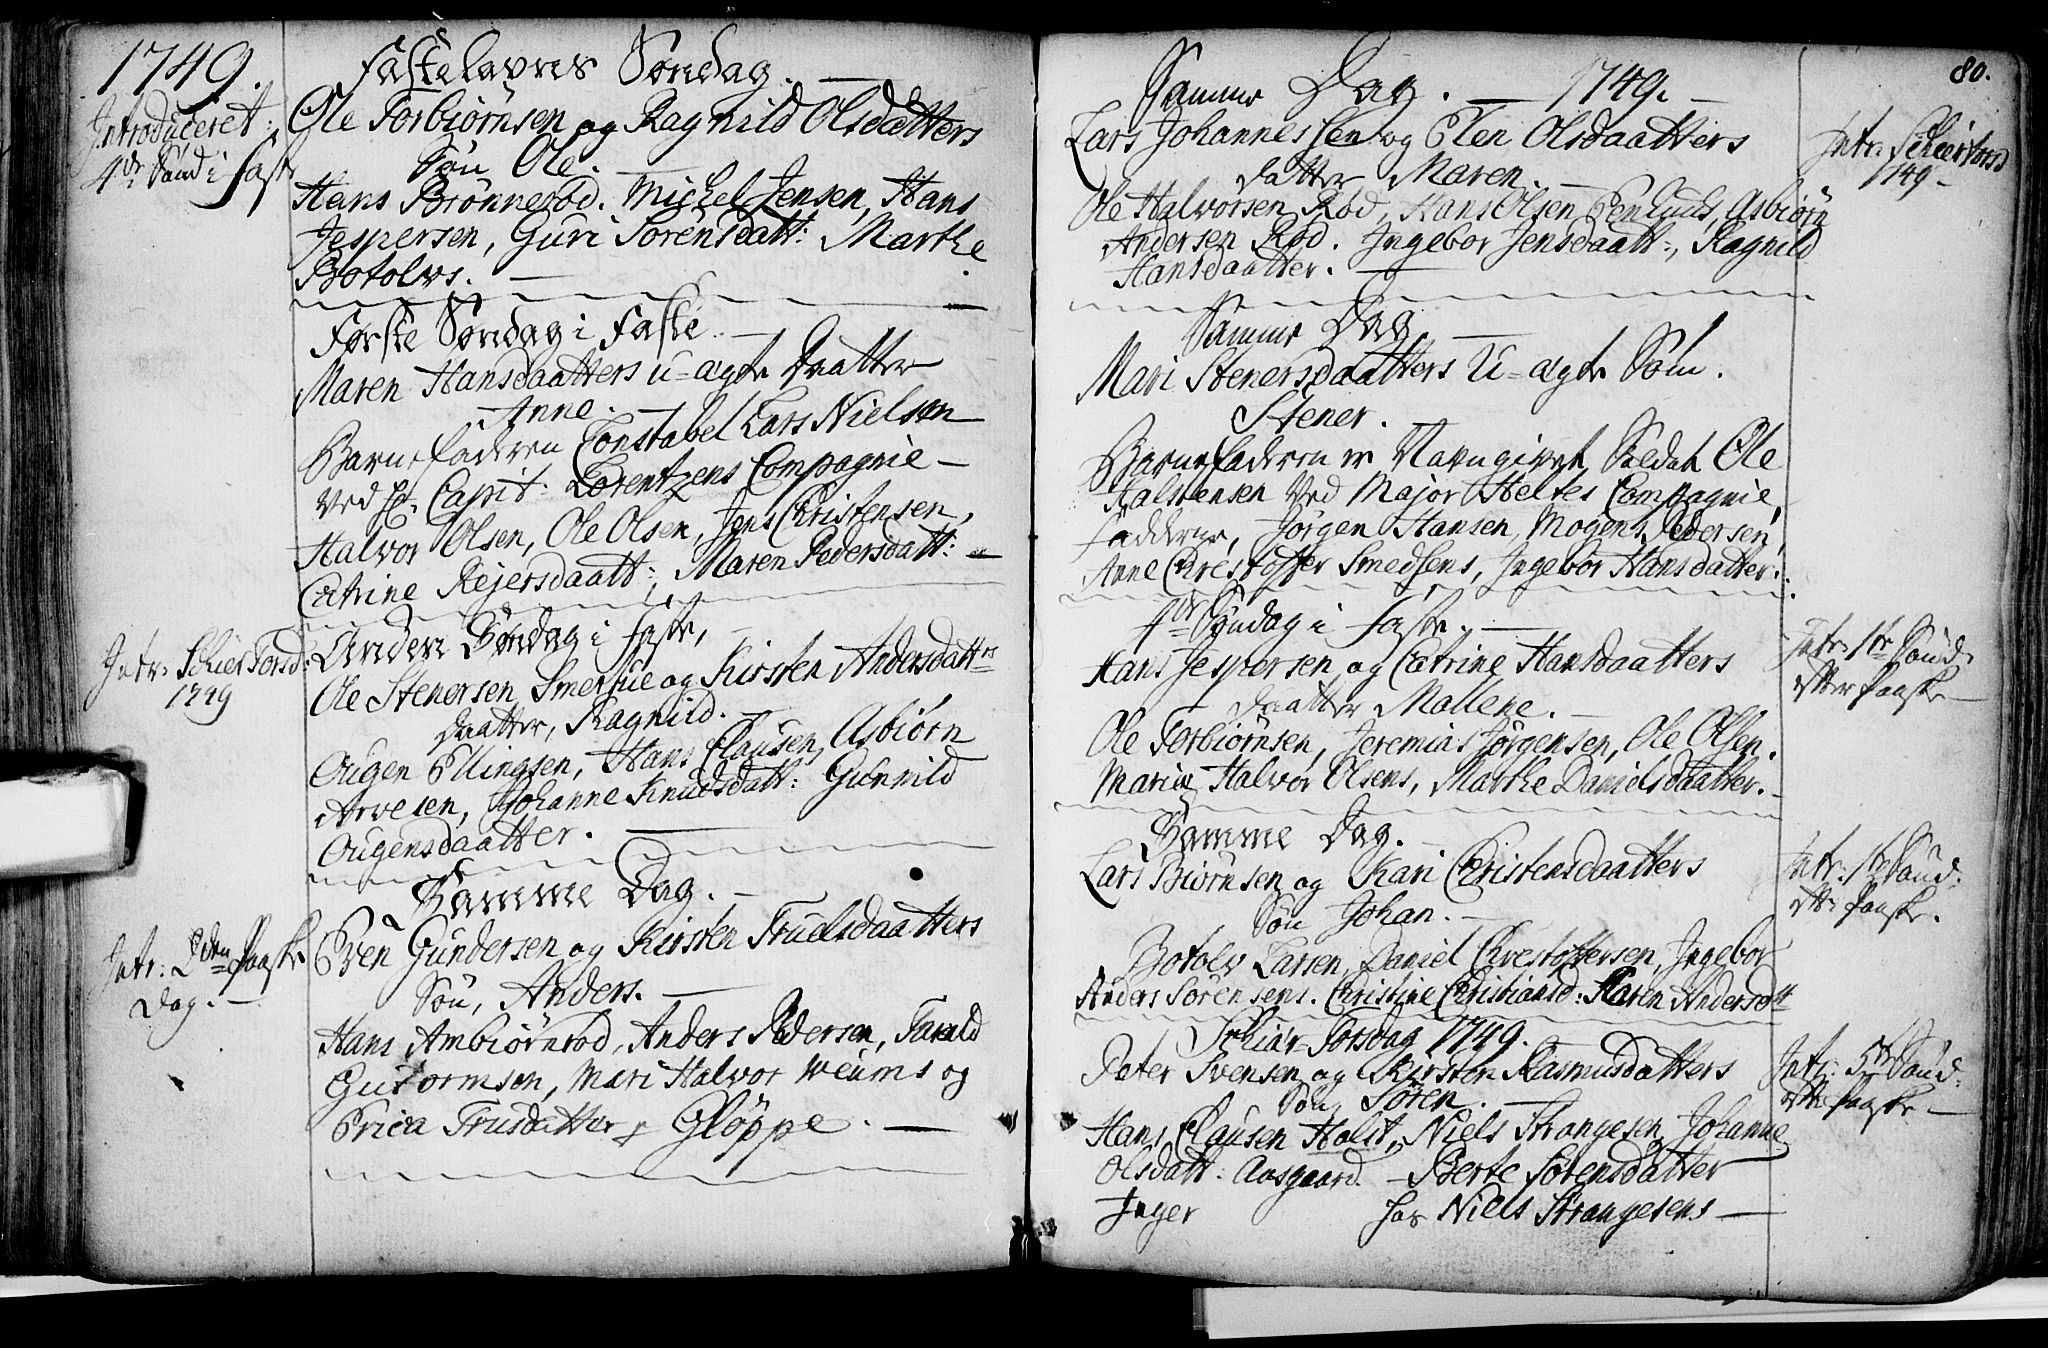 1749.
Introduceret:
4de Sønd i Faste
Fastelavns Søndag. —
Ole Torbiørnsen og Ragnild Olsdatters
Søn Ole. —
Hans Brønnerød. Michel Jensen, Hans
Jespersen, Guri Sørensdatt: Marthe
Botolvs. —
Første Søndag i Faste. —
Maren Hansdaatters u-ægte Daatter
Anne. —
Barnefaderen Constabel Lars Nielsøn
ved Capit: Lorentzens Compagnie —
Halvor Olsen, Ole Olsen, Jens Christensen,
Catrine Rejersdaatt:, Maren Pedersdatt: —
Intr. Schier Torsd:
1749
Anden Søndag i Faste,
Ole Stenersen Smertue og Kirsten Andersdattrs
Daatter, Ragnild. —
Ougen Ellingsen, Hans Clausen, Asbiørn
Arvesen, Johanne Knudsdatt: Gunnild
Ougensdaatter. —
Intr: 2den Paaske
Dag. —
Samme Dag. —
Even Gundersen og Kirsten Truelsdaatters
Søn, Anders. —
Hans Ambiørnrød, Anders Pedersen, Tarald
Gutormsøn, Mari Halvor Weums og
Erica Trusdatter Gløppe. —
80.
Samme Dag. — 1749. —
Lars Johannessen og Elen Olsdaatters
Datter Maren. —
Intr. Schiertorsd
1749 —
Ole Halvorsen Rød, Hans Olsen Penlund, Asbiørn
Andersen Rød. Ingebor Jensdaatt:, Ragnild
Hansdaatter. —
Samme Dag —
Mari Stenersdaatters U-ægte Søn.
Stener.
Barnefaderen er Navngivet Soldat Ole
Halstensen ved Major Heltes Compagnie,
Fadderne, Jørgen Hansen, Mogens Pedersen,
Anne Christopher Smedsens, Ingebor Hansdatter.
4de Søndag i Faste. —
Hans Jespersen og Catrine Hansdaatters
Daatter Mallene. —
Intr. 1te Sønd.
efter Paaske —
Ole Torbiørnsen, Jeremias Jørgensen, Ole Olsen.
Marie Halvor Olsens, Marthe Danielsdaatter. —
Samme Dag.
Lars Biørnsen og Kari Christensdaatters
Søn Johan. —
Intr: 1te Sønd:
eft: Paaske.
Botolv Larsen, Daniel Christophersen, Ingebor
Anders Sørensens. Christine Christiansd: Karen Andersdtt
Schiør-Torsdag 1749.
Peter Svensen og Kirsten Rasmusdatters
Søn Søren. —
Intr: 5te Sønd:
eft: Paaske —
Hans Clausen Holst, Niels Strangesen, Johanne
Olsdatt: Aasgaard — Berte Sørensdatter
Inger hos Niels Strangesens —